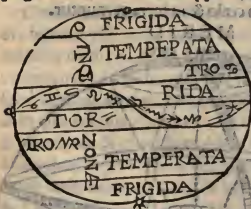 FRIGIDA
TEMPEPATA
TRO
RIDA
TOR
TRO
ZONÆ
TEMPERATA
FRIGIDA